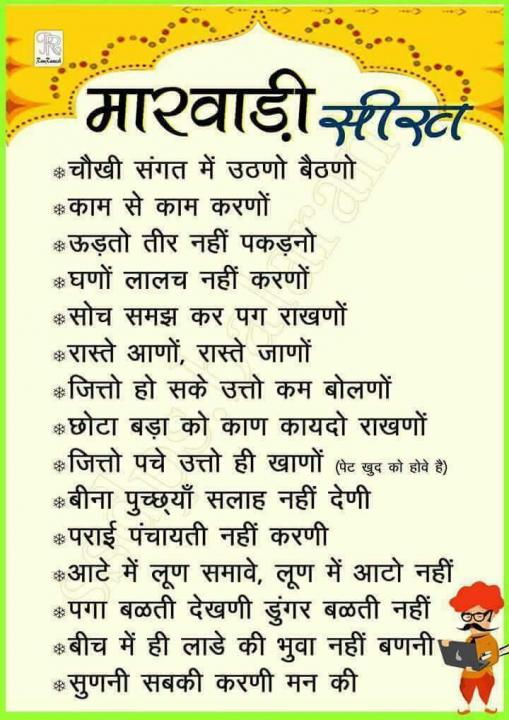 JR
RamRamesh
मारवाड़ी सीख
चौखी संगत में उठणो बैठणो
काम से काम करणों
ऊड़तो तीर नहीं पकड़नो
घणों लालच नहीं करणों
सोच समझ कर पग राखणों
रास्ते आणों, रास्ते जाणों
जित्तो हो सके उत्तो कम बोलणों
छोटा बड़ा को काण कायदो राखणों
जित्तो पचे उत्तो ही खाणों (पेट खुद को होवे है)
बीना पुच्छ्याँ सलाह नहीं देणी
पराई पंचायती नहीं करणी
आटे में लूण समावे, लूण में आटो नहीं
पगा बळती देखणी डुंगर बळती नहीं
बीच में ही लाडे की भुवा नहीं बणनी
सुणनी सबकी करणी मन की